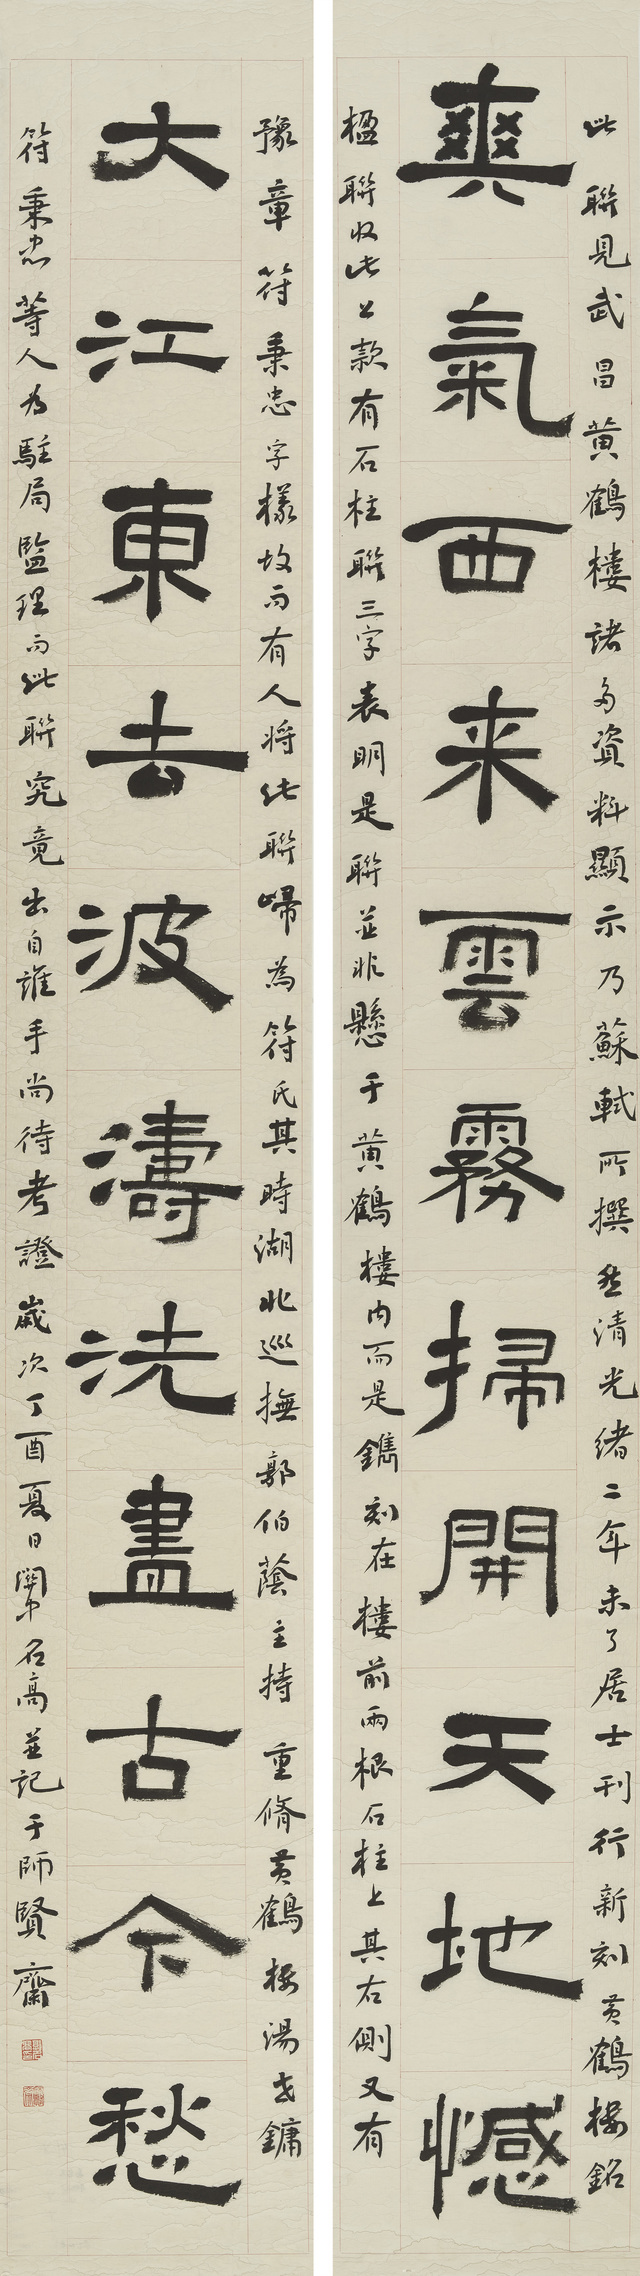 此聯見武昌黃鶴樓諸多資料顯示乃蘇軾所撰然清光緒二年未了居士刊行新刻黃鶴樓銘
爽氣西来雲霧掃開天地憾
楹聯收此上款有石柱聯三字表明是聯並非懸于黃鶴樓内而是鐫刻在樓前兩根石柱上其右側又有
豫章符秉忠字樣故而有人將此聯歸為符氏其時湖北巡撫郭伯蔭主持重脩黃鶴樓湯世鏞
大江東去波濤洗盡古今愁
符秉忠等人為駐局監理而此聯究竟出自誰手尚待考證歲次丁酉夏日閳中石高並記于師賢齋